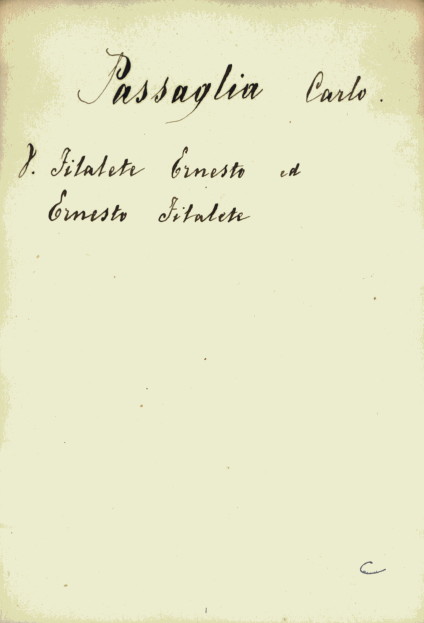 Passaglia Carlo.
V. Filalete Ernesto ed
Ernesto Filalete
C